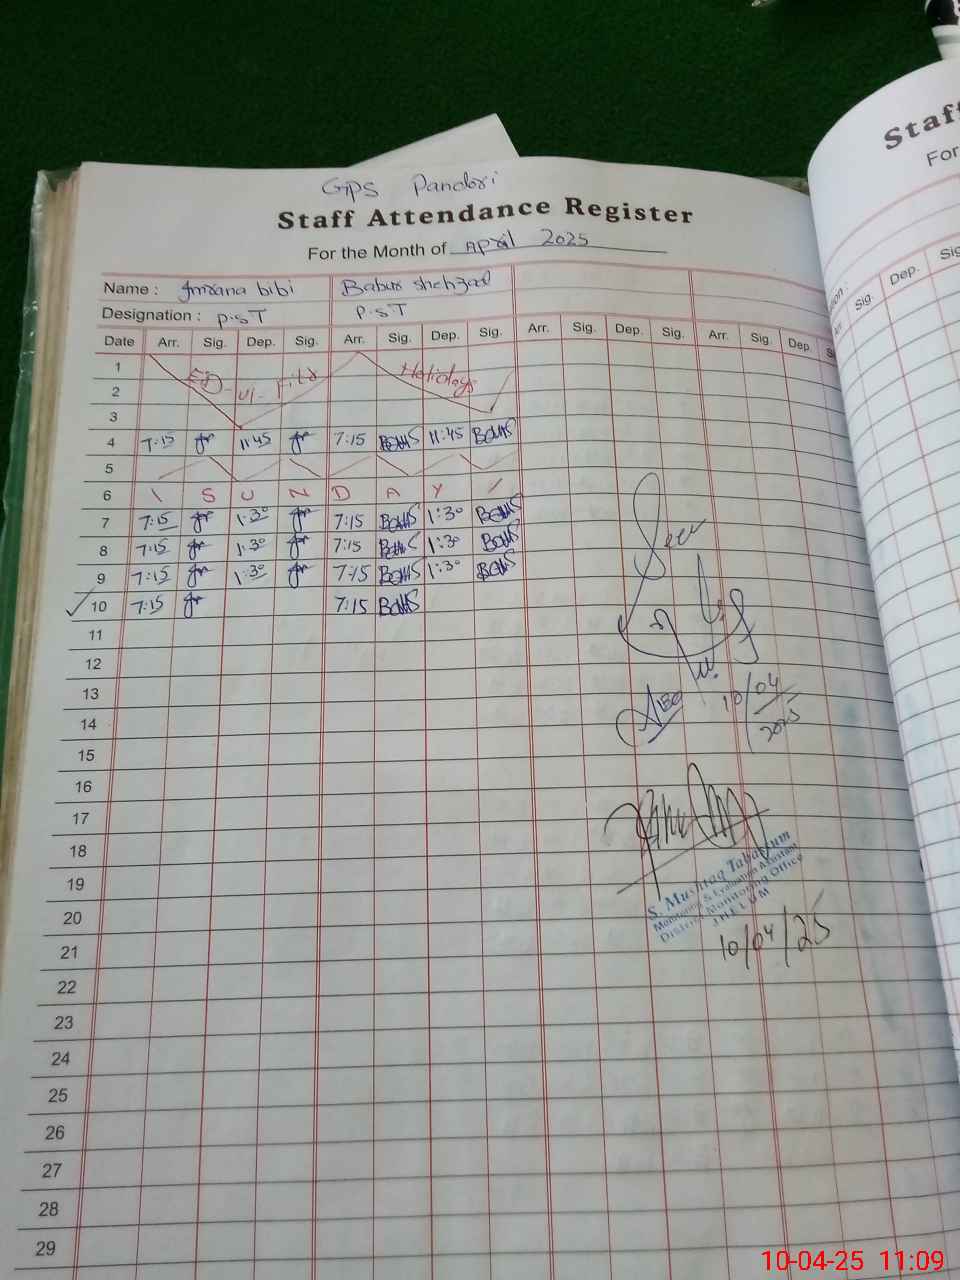 GPS Pandori
Staff Attendance Register
For the Month of April 2025
Name : Imrana bibi Babur Shehzad
Designation : P.S.T P.S.T
Date Arr. Sig. Dep. Sig. Arr. Sig. Dep. Sig. Arr. Sig. Dep. Sig. Arr. Sig. Dep. S
1
2 Eid-ul-Fitr Holidays
3
4 7:15 11:45 7:15 11:45
5
6 S U N D A Y
7 7:15 1:30 7:15 1:30
8 7:15 1:30 7:15 1:30
9 7:15 1:30 7:15 1:30
10 7:15 7:15
11
12
13
14
15
16
17
18
19
20
21
22
23
24
25
26
27
28
29
Seen
10/04/2025
S. Mushtaq Tabassum
Monitoring & Evaluation Assistant
District Monitoring Office
JHELUM
10/04/25
Staff
For
Sig. Dep. Sig
10-04-25 11:09